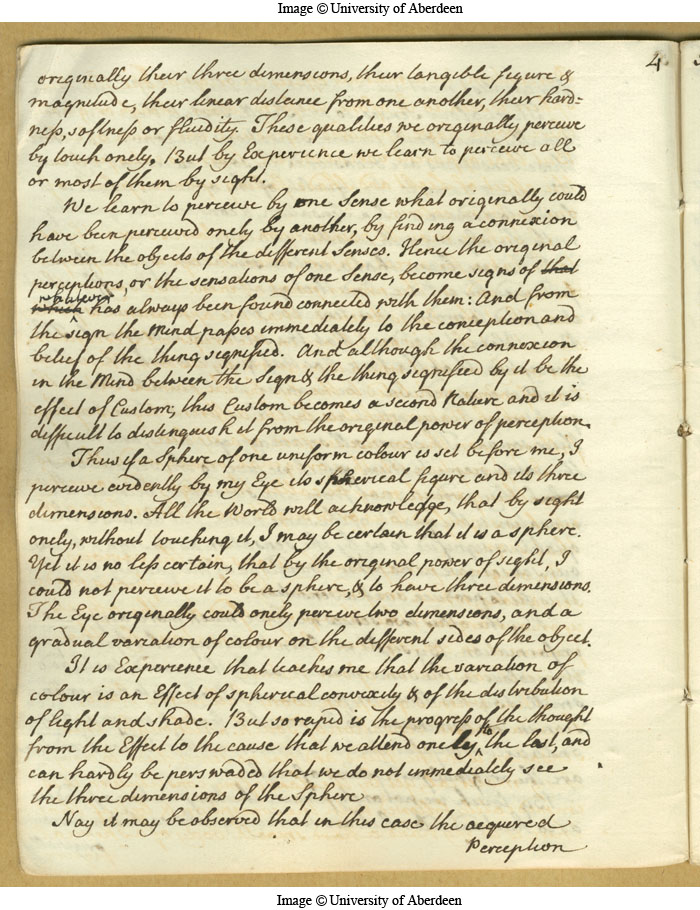 Image © University of Aberdeen
4
originally their three dimensions, their tangible figure &
magnitude, their linear distance from one another, their hard=
ness, softness or fluidity. These qualities we originally perceive
by touch onely. But by Experience we learn to perceive all
or most of them by sight.
We learn to perceive by one Sense what originally could
have been perceived onely by another, by finding a connexion
between the objects of the different Senses. Hence the original
perceptions, or the sensations of one Sense, become signs of that
whatever
which has always been found connected with them: And from
the sign the Mind passes immediately to the conception and
belief of the thing signified. And although the connexion
in the Mind between the Sign & the thing signified by it be the
effect of Custom, this Custom becomes a second Nature and it is
difficult to distinguish it from the original power of perception.
Thus if a Sphere of one uniform colour is set before me, I
perceive evidently by my Eye its spherical figure and its three
dimensions. All the World will acknowledge, that by sight
onely, without touching it, I may be certain that it is a sphere.
Yet it is no less certain, that by the original power of sight, I
could not perceive it to be a sphere, & to have three dimensions.
The Eye originally could onely perceive two dimensions, and a
gradual variation of colour on the different sides of the object.
It is Experience that teaches me that the variation of
colour is an Effect of spherical convexity & of the distribution
of light and shade. But so rapid is the progress of the thought
from the Effect to the cause that we attend onely to the last, and
can hardly be perswaded that we do not immediately see
the three dimensions of the Sphere
Nay it may be observed that in this case the acquired
Perception
Image © University of Aberdeen